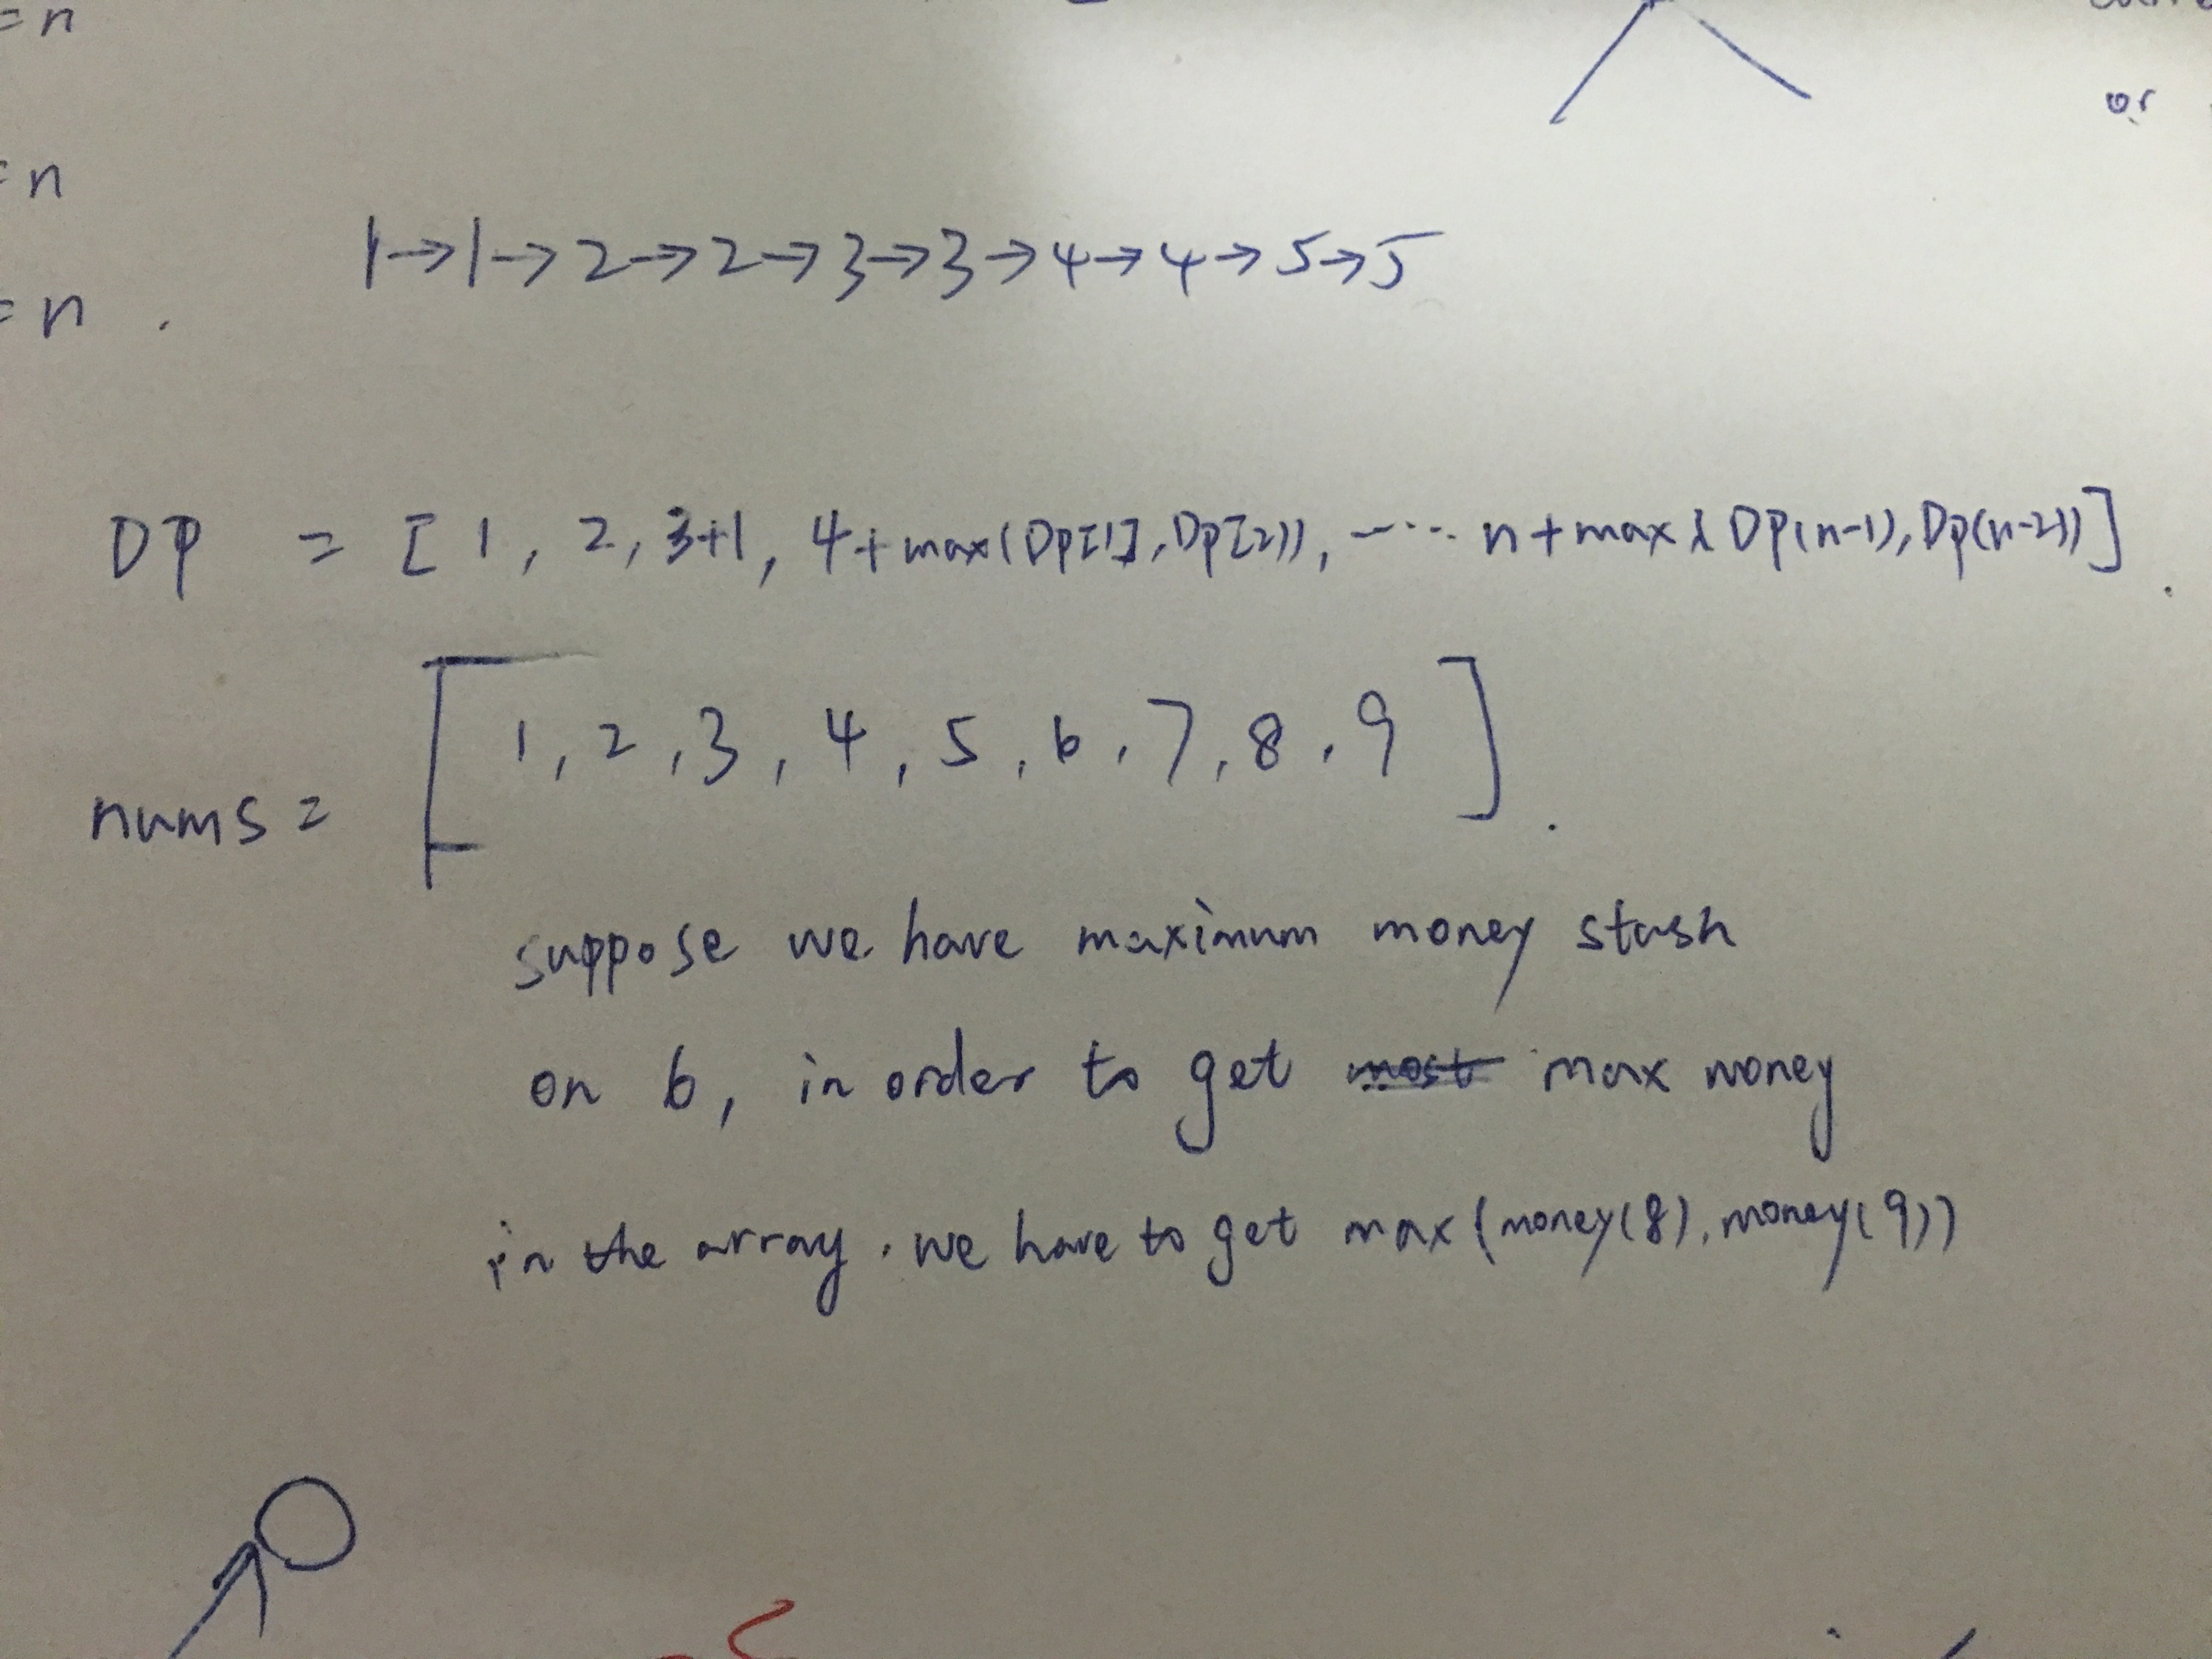 = n
= n
= n
io
1→1→2→2→3→3→4→4→5→5
DP = [1, 2, 3+1, 4+max(Dp[1], Dp[2]), -... n+max(DP(n-1), Dp(n-2))]
nums = [1, 2, 3, 4, 5, 6, 7, 8, 9]
suppose we have maximum money stash
on 6, in order to get most max money
in the array. we have to get max (money(8), money(9))